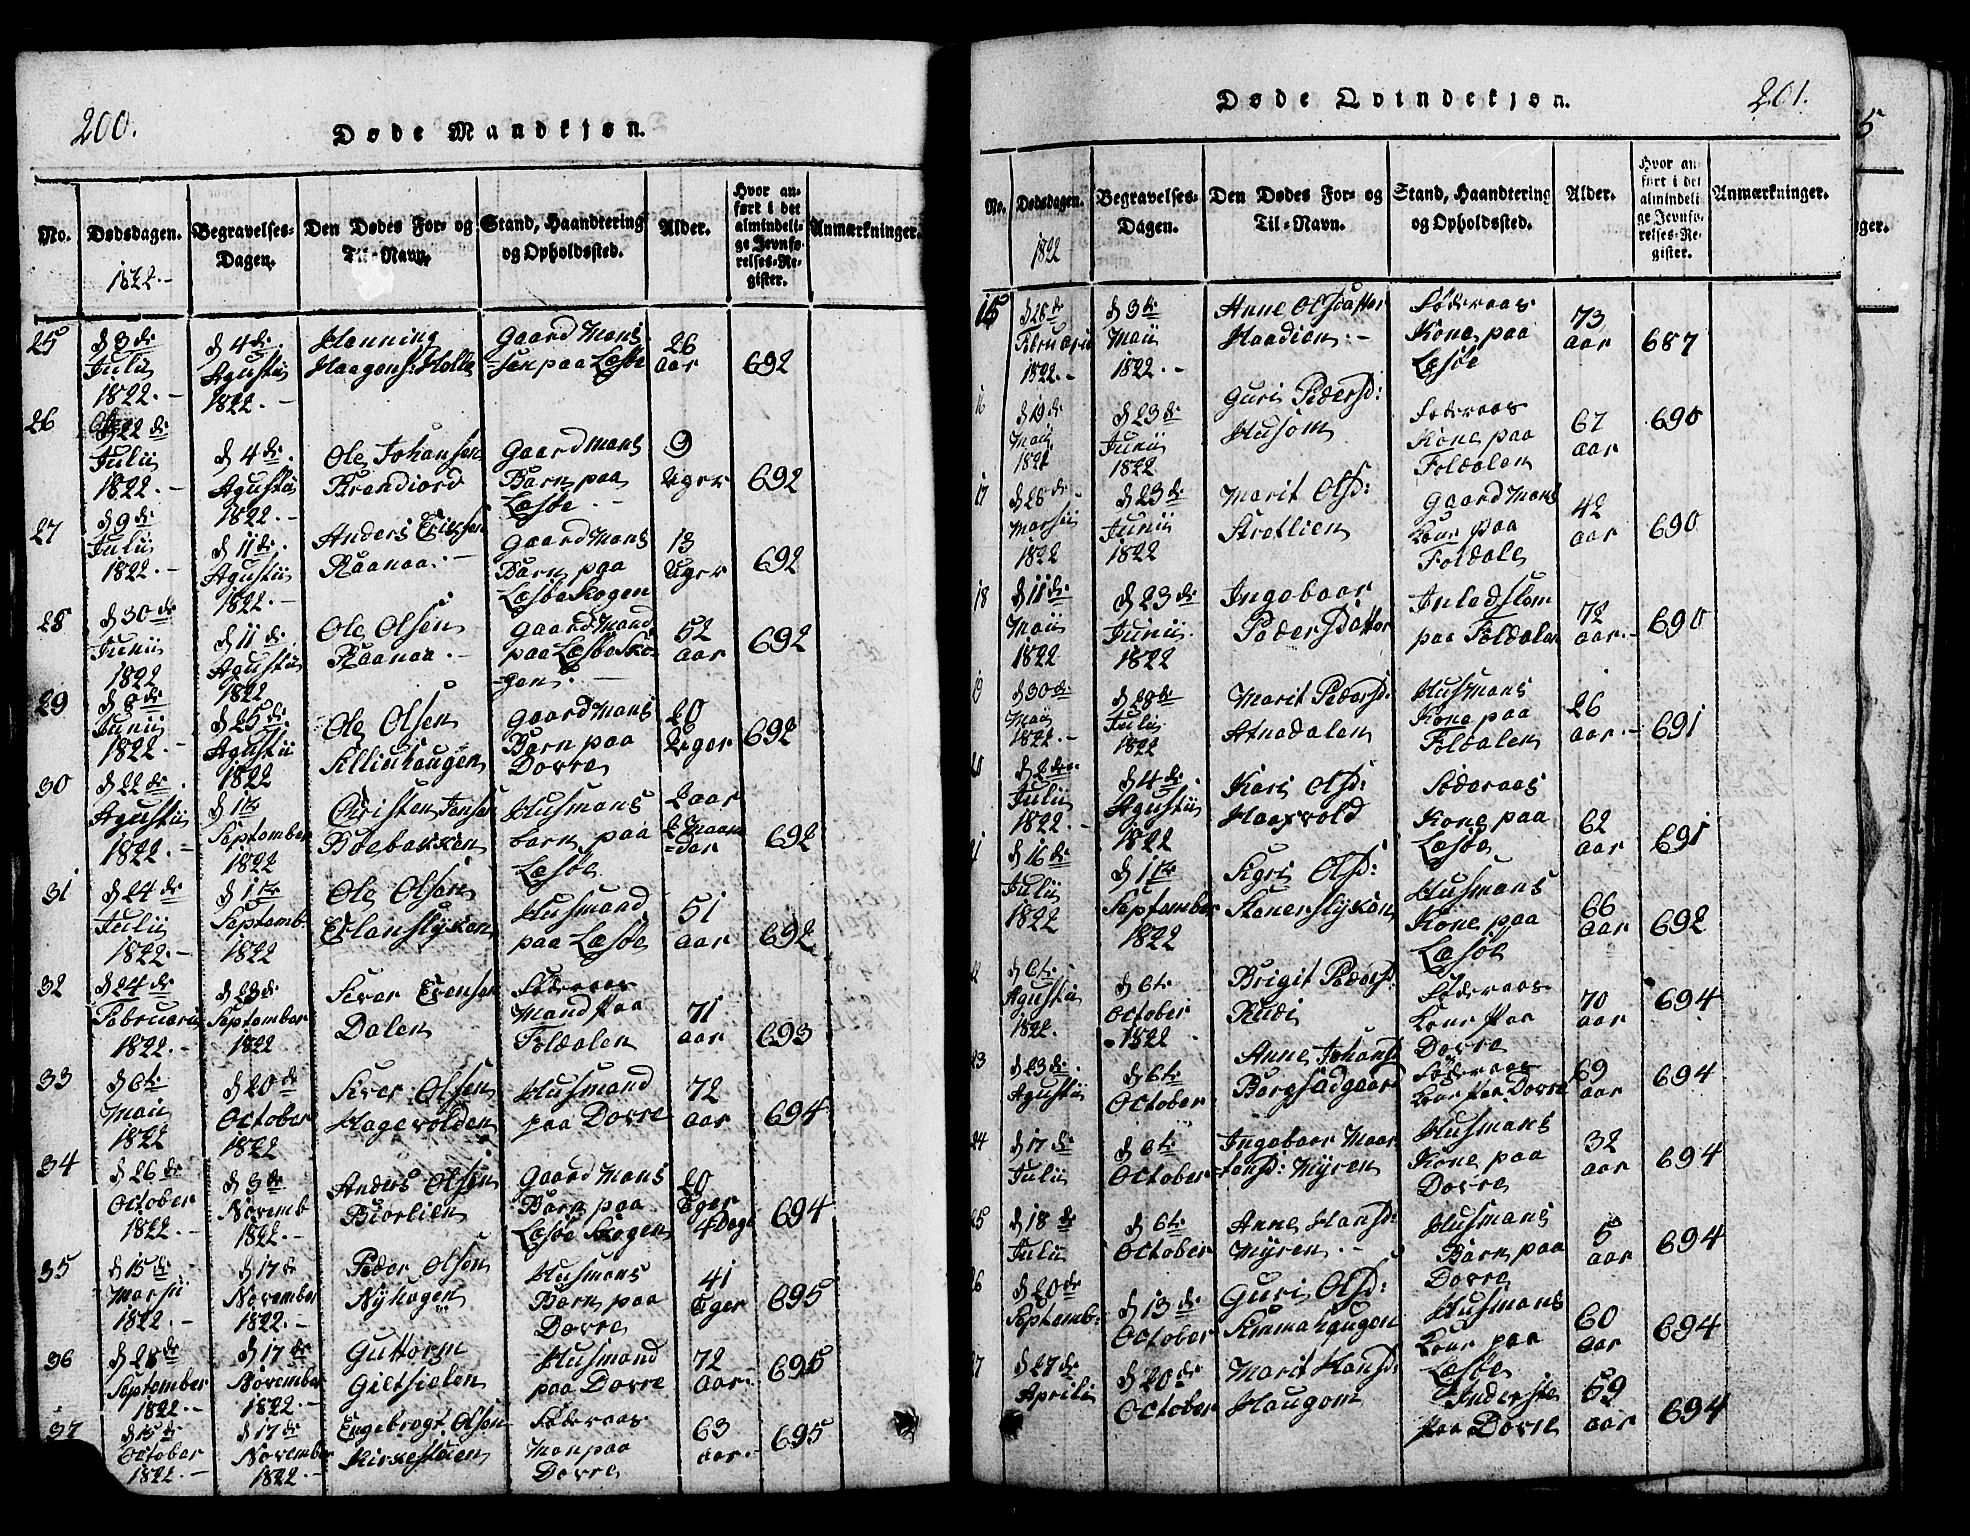 200.
Døde Mandkjøn.
No.
Dødsdagen.
1822.-
Begravelses-
Dagen.
Den Dødes For- og
Til-Navn.
Stand, Haandtering
og Opholdssted.
Alder.
Hvor an-
ført i det
almindeli-
ge Jevnfø-
relses-Re-
gister.
Anmærkninger.
25
d 3 de
Julii
1822.-
d 4 de.
Agustii
1822.-
Hanning
Haagens: Holte
Gaard Mans
-søn paa Læsøe
26
aar
692
26
d 22 de
Julii
1822.-
d 4 de.
Agustii
1822.-
Ole Johansen
Brendiord
Gaardmans
Barn paa
Læsøe.
9
Uger
692
27
d 9 de
Julii
1822.-
d 11 de.
Agustii
1822.-
Anders Ericsen
Raanaa.-
Gaard Mans
Barn paa
Læsøe Skogen
13
Uger
692
28
d 30 de
Junii
1822
d 11 de
Agustii
1822
Ole Olsen
Raanaa.-
Gaard Mand
paa Læsøe Sko-
-gen.-
52
aar
692
29
d 8 de
Junii
1822.-
d 25 de.
Agustii
1822
Ole Olsen
Killiuhaugen
Gaard Mans
Barn paa
Dovre
20
Uger
692
30
d 22 de.
Agustii
1822.-
d 1 te
September
1822
Christen Jensen
Bøebakken
Husmans
barn paa
Læsøe
2 aar
2 Maane
-der
692
31
d 24 de
Julii
1822.-
d 1 te
Septemb.
1822
Ole Olsen
Eslenslykken
Husmand
paa Læsøe
51
aar
692
32
d 24 de
Februarii
1822.-
d 23 de
September
1822
Siver Evensen
Dalen
Føderaas
Mand paa
Foldalen
71
aar
693
33
d 6 te
Maii
1822
d 20 de
October
1822
Siver Olsen
Hagevolden
Husmand
paa Dovre
72
aar
694
34
d 26 de
October
1822.-
d 3 de
Novemb
1822.-
Anders Olsen
Biorlien
Gaard Mans
Barn paa
Læsøe Skogen
20
Uger
4 Dage
694
35
d 15 de
Marsii
1822.-
d 17 de
November
1822.-
Peder Olsen
Nyhagen
Husmans
Barn paa
Dovre
41
Uger
695
36
d 28 de
September
1822.-
d 17 de
November
1822.-
Guttorm
Gietsielen
Husmand
paa Dovre
72
aar.
695
37
d 15 de
October
1822.-
d 17 de
November
1822.-
Engebregt Olsen
Kirkestuen
Føderaas
Man paa
Dovre
63
aar.-
695
201.
Døde Qvindekjøn.
No.
Dødsdagen.
1822
Begravelses-
Dagen.
Den Dødes For- og
Til-Navn.
Stand, Haandtering
og Opholdssted.
Alder.
Hvor an-
ført i det
almindeli-
ge Jevnfø-
relses-Re-
gister.
Anmærkninger.
15
d 28 de
Februarii
1822.-
d 3 de
Maii
1822.-
Anne Olsdatter
Haadien.-
Føderaas
Kone paa
Læsøe
73
aar
687
16
d 19 de
Maii
1822
d 23 de
Junii
1822
Guri Pedersd:
Husom
Føderaas
Kone paa
Foldalen
67
aar
690
17
d 28 de
Marsii
1822
d 23 de
Junii
1822
Marit Olsd:
Strætlien
Gaard Mans
Kone paa
Foldalen
42
aar
690
18
d 11 de
Maii
1822
d 23 de
Junii
1822
Ingeboor
Pedersdatter
Inledslom
paa Foldalen
72
aar.-
690
19
d 30 de
Maii
1822.-
d 28 de
Julii
1822
Marit Pedersd:
Atnedalen
Husmans
Kone paa
Foldalen
26
aar.-
691
20
d 2 den
Julii
1822.-
d 4 de.
Agustii
1822
Kari Olsd:
Haaxvold
Føderaas
Kone paa
Læsøe
62
aar
691
21
d 16 de
Julii
1822
d 1 te
September
1822
Sigri Olsd:
Stenerslykken
Husmans
Kone paa
Læsøe
66
aar
692
22
d 6 te
Agustii
1822.
d 6 te
October
1822
Brigit Pedersd:
Rudi
Føderaas
Kone paa
Dovre
70
aar
694
23
d 23 de
Agustii
d 6 te
October
Anne Johansd
Bergsedgaard
Føderaas
Kone paa Dovre
69
aar
694
24
d 17 de
Julii
d 6 te
October
Ingeboor Maar
-tensd: Myren
Husmans
Kone paa
Dovre
32
aar
694
25
d 18 de
Julii
d 6 te
October
Anne Hansd:
Myren.-
Husmans
Barn paa
Dovre
5
aar
694
26
d 20 de
Septemb:
d 13 de
October
Guri Olsd:
Simmahaugen
Husmans
Kone paa
Læsøe
60
aar
694
27
d 27 de
Aprilii
d 20 de
October
Marit Hansd:
Haugom
Inderste
paa Dovre
59
aar
694
5
ger.